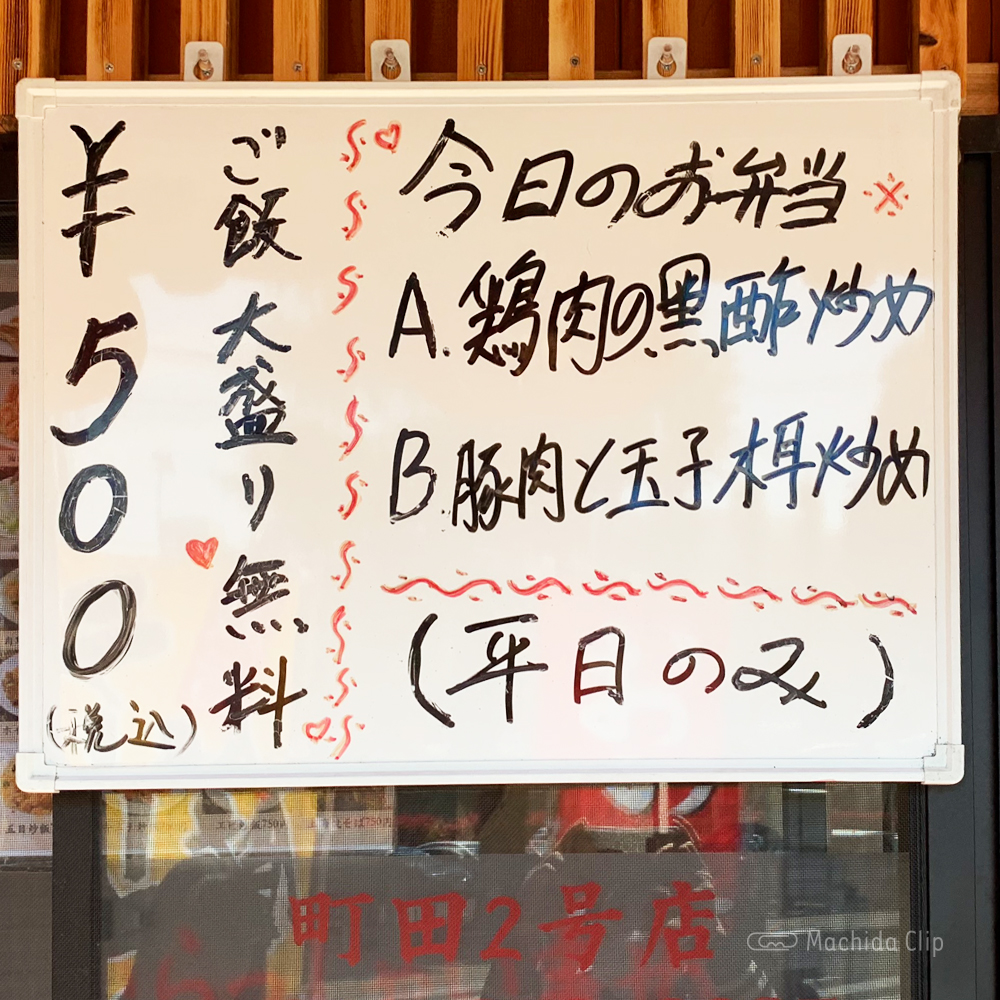 今日のお弁当※
A.鶏肉の黒酢炒め
B.豚肉と玉子木耳炒め
(平日のみ)
ご飯大盛り無料
¥500
(税込)
町田2号店
Machida Clip